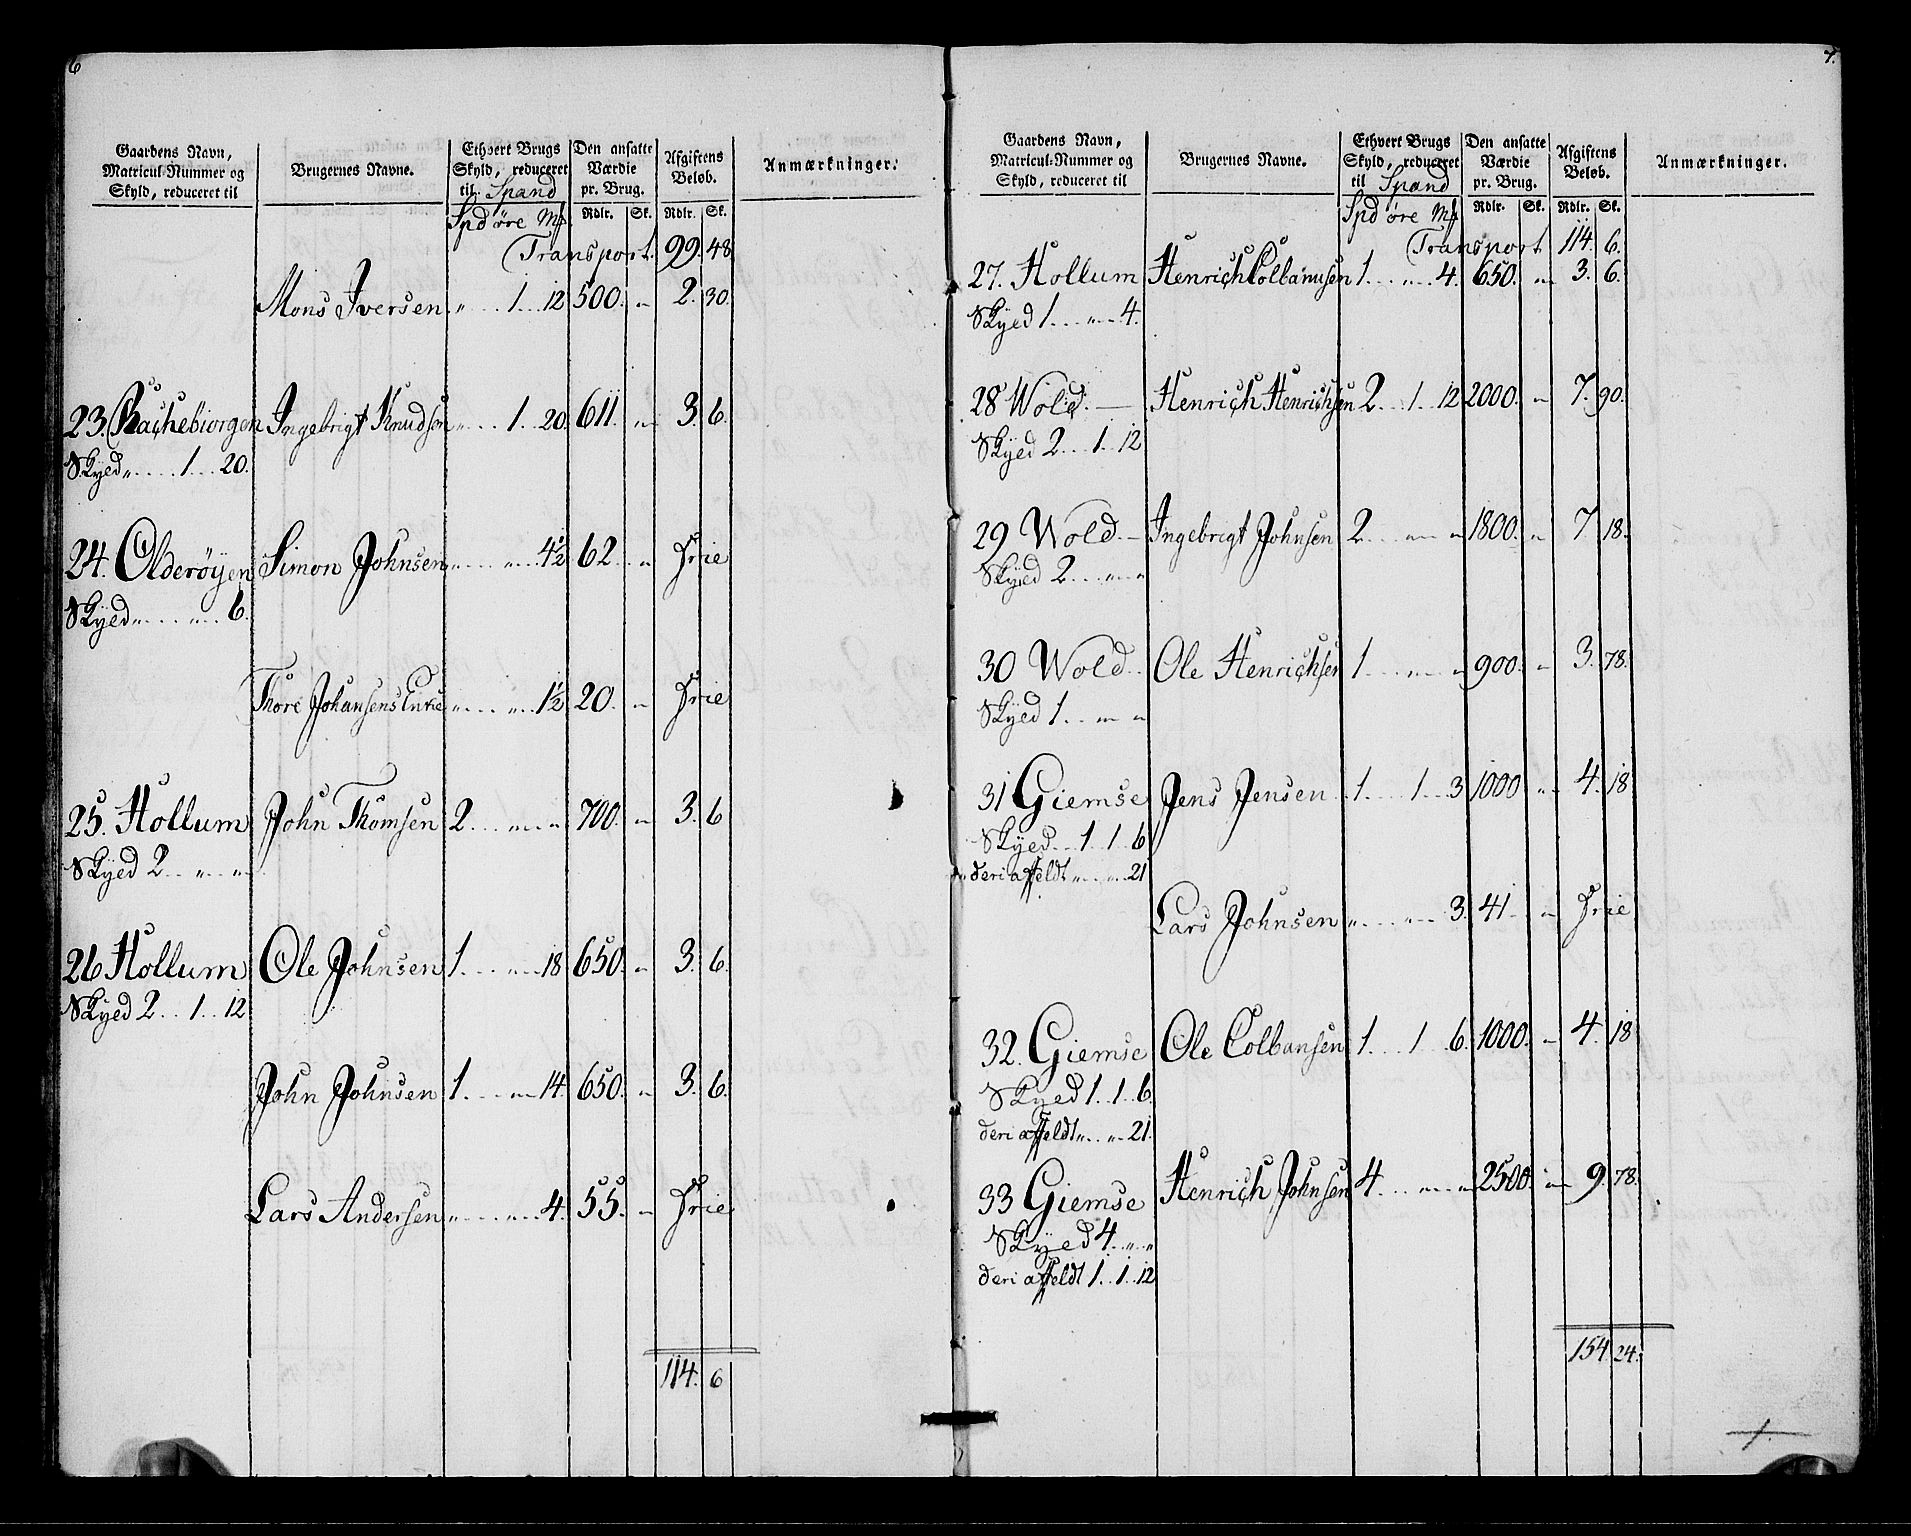 6
Gaardens Navn, Matricul-Nummer og Skyld, reduceret til
Brugernes Navne.
Ethvert Brugs Skyld, reduceret til Spand
Den ansatte Værdie pr. Brug.
Afgiftens Beløb.
Anmærkninger.
Spd øre Mf Rdlr. Sk. Rdlr. Sk.
Transport. 99. 48
Mons Iversen „ 1 12 500. „ 2. 30.
23. Rachebiorgen Ingebrigt Knudsøn „ 1 20. 611. „ 3. 6.
Skyed „ 1 20.
24. Olderöyen Simon Johnsen „ „ 4½ 62 „ Frie
Skyed „ „ 6.
Thore Johansens Enke „ „ 1½ 20. „ Frie
25. Hollum John Thomsen 2 „ „ 700. „ 3. 6
Skyed 2 „ „
26 Hollum Ole Johnsen 1 „ 18 650. „ 3. 6.
Skyed 2 1 12
John Johnsen 1 „ 14. 650. „ 3. 6.
Lars Andersen „ „ 4. 55. „ Frie
114. 6
7.
Gaardens Navn, Matricul-Nummer og Skyld, reduceret til
Brugernes Navne.
Ethvert Brugs Skyld, reduceret til Spand
Den ansatte Værdie pr. Brug.
Afgiftens Beløb.
Anmærkninger.
Spd øre Mf Rdlr. Sk. Rdlr. Sk.
Transport 114. 6.
27. Hollum Henrich Colbanusen 1 „ 4. 650. „ 3. 6.
Skyed 1 „ 4.
28 Wold. Henrich Henrichsen 2 1 12 2000. „ 7. 90.
Skyed 2 1 12
29 Wold. Ingebrigt Johnsen 2 „ „ 1800. „ 7 18.
Skyed 2 „ „
30 Wold Ole Henrichsen 1 „ „ 900. „ 3. 78.
Skyed 1 „ „
31 Giemse Jens Jensen 1 1 3 1000 „ 4. 18
Skyed 1 1 6
deri affeldt „ „ 21
Lars Johnsen „ „ 3. 41 „ Frie
32. Giemse Ole Colbansen 1 1 6. 1000. „ 4. 18
Skyed 1 1 6.
deri affeldt „ „ 21.
33 Giemse Henrich Johnsen 4 „ „ 2500. „ 9. 78.
Skyed 4 „ „
deri affeldt 1 1 12
154. 24.